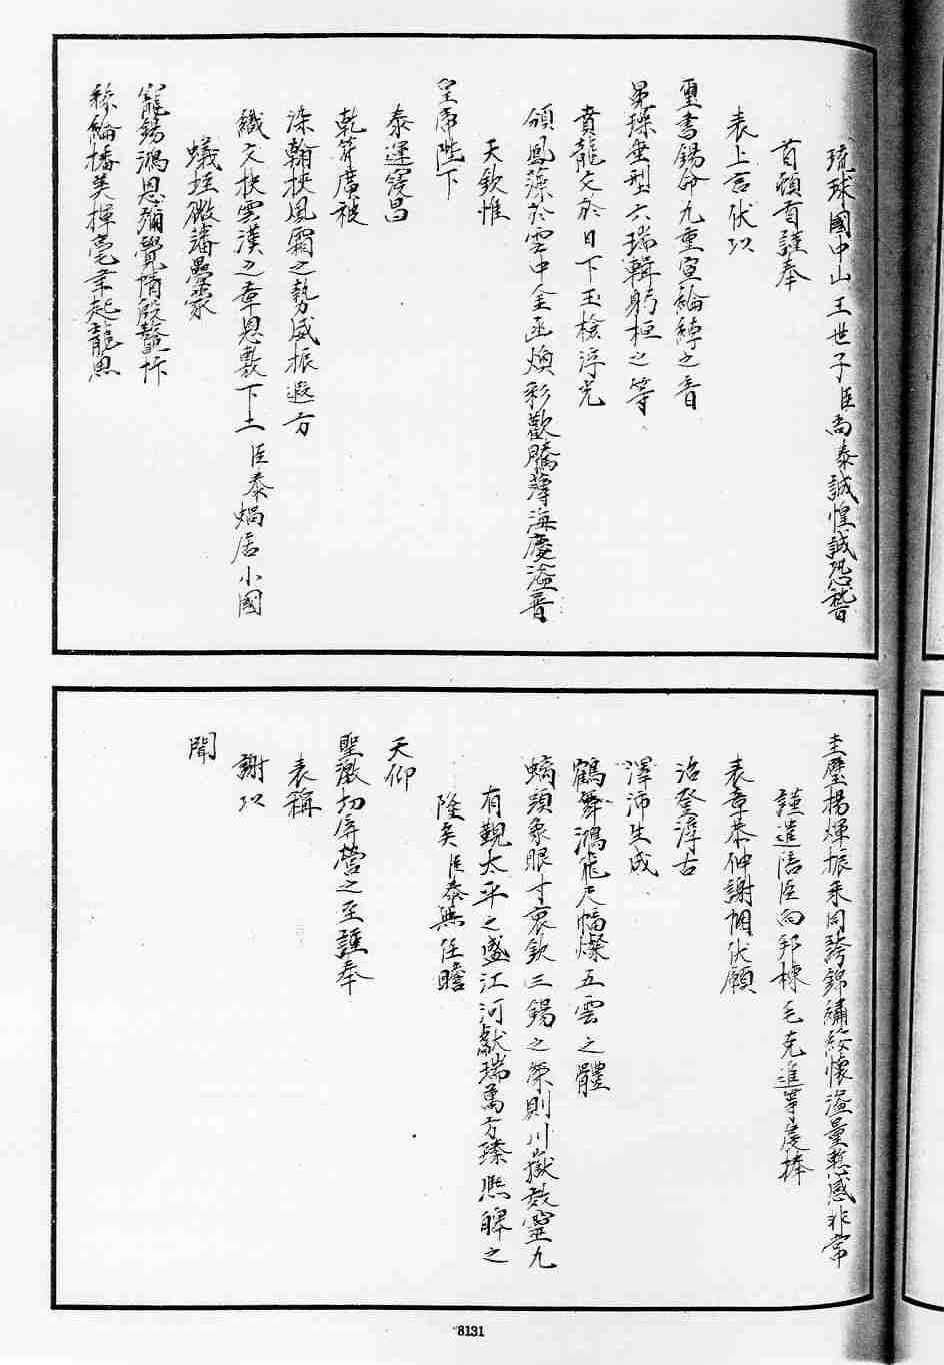 琉球國中山王世子臣尚泰誠惶誠恐稽
首頓首謹奉
表上言伏以
璽書錫命九重宣綸綍之音
冕璪垂型六瑞輯躬桓之等
賁龍文於日下玉檢浮光
頒鳳藻於雲中金函煥彩歡騰薄海慶溢普
天欽惟
皇帝陛下
泰運寖昌
乾符廣被
染翰挾風霜之勢威振遐方
織文抉雲漢之章恩敷下土臣泰蝸居小國
蟻垤微藩疊蒙
寵錫鴻恩彌覺隋殷鼇忭
綸播美揮毫幸起龍
圭璧揚煇振采同誇錦繡經懷溢量慙感非常
謹遣陪臣向邦棟毛克進等虔捧
表章恭伸謝悃伏願
治登淳古
澤沛生成
鶴舞鴻飛尺幅燦五雲之體
螭頭象眼寸衷欽三錫之榮則川嶽效靈九
有覲太平之盛江河獻瑞萬方臻熙皞之
隆矣臣泰無任瞻
天仰
聖激切屏營之至謹奉
表稱
謝以
聞
8131